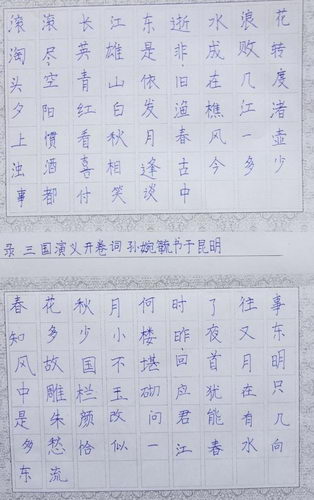 滚滚长江东逝水浪花
淘尽英雄是非成败转
头空青山依旧在几度
夕阳红白发渔樵江渚
上惯看秋月春风一壶
浊酒喜相逢古今多少
事都付笑谈中
录三国演义开卷词孙婉毓书于昆明
春花秋月何时了往事
知多少小楼昨夜又东
风故国不堪回首月明
中雕栏玉砌应犹在只
是朱颜改问君能有几
多愁恰似一江春水向
东流